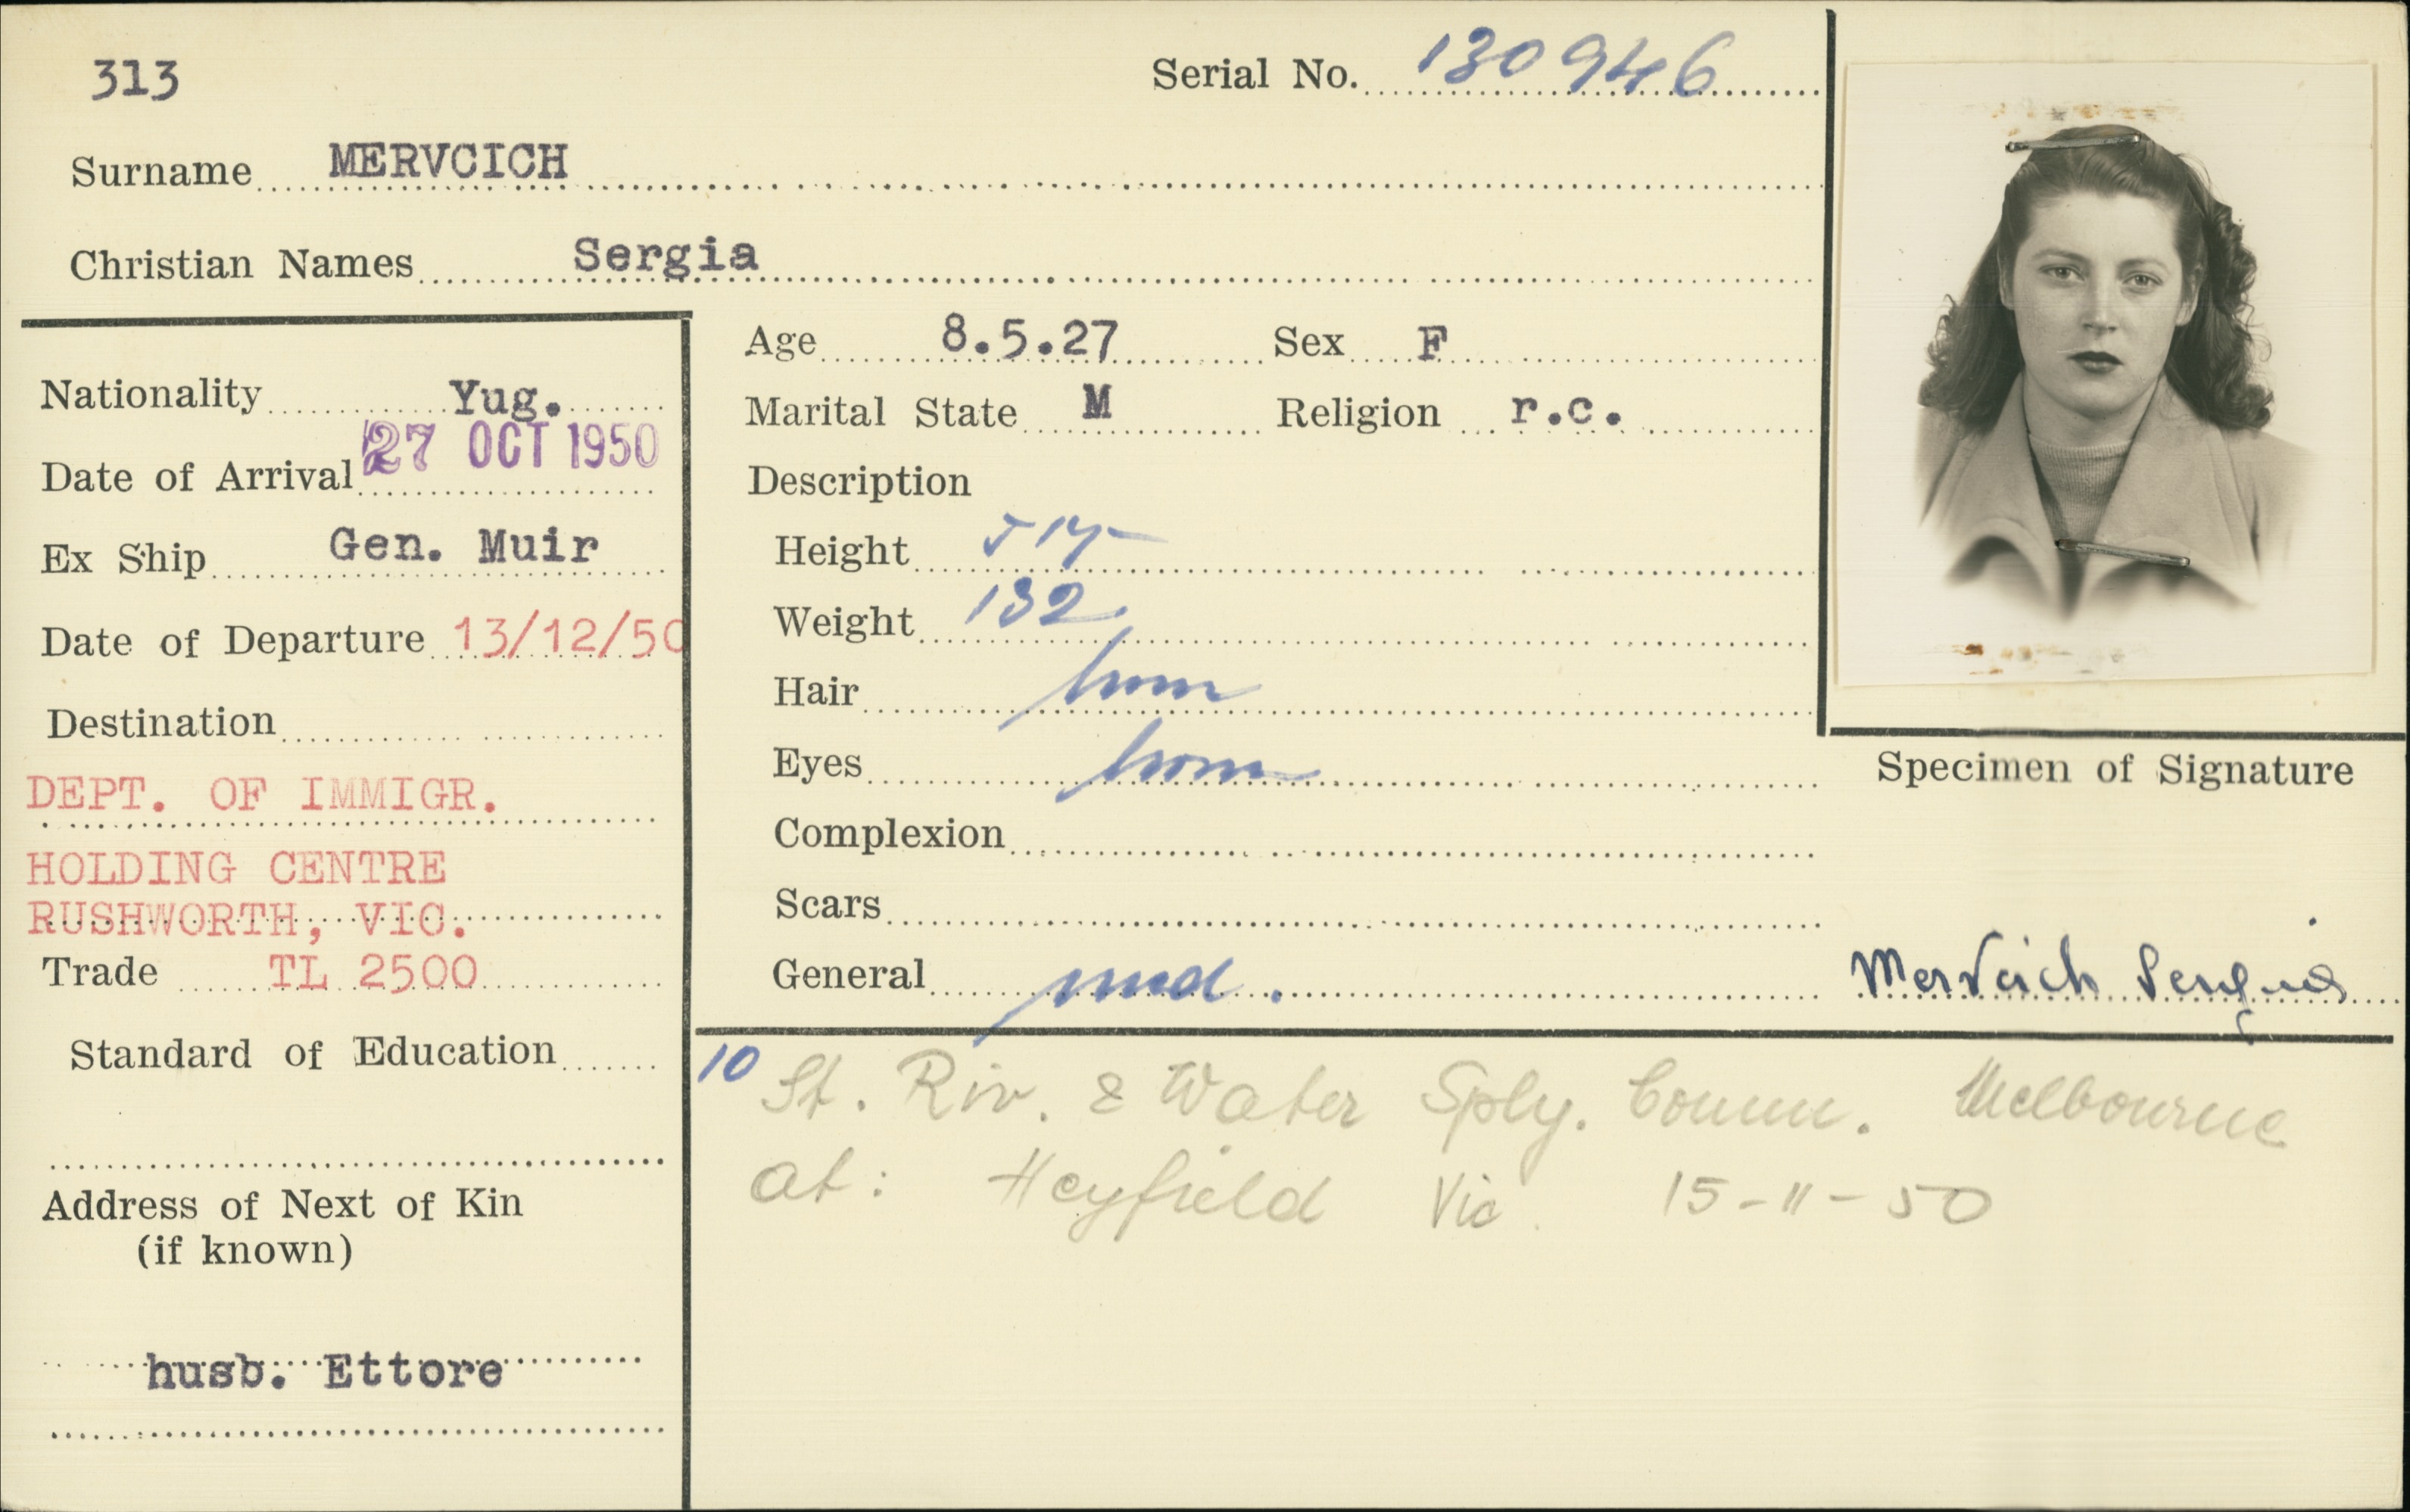 313
Serial No. 130946
Surname MERVCICH
Christian Names Sergia
Nationality Yug.
Date of Arrival 27 OCT 1950
Ex Ship Gen. Muir
Date of Departure 13/12/50
Destination
DEPT. OF IMMIGR.
HOLDING CENTRE
RUSHWORTH, VIC.
Trade TL 2500
Standard of Education
Address of Next of Kin
(if known)
husb. Ettore
Age 8.5.27 Sex F
Marital State M Religion r.c.
Description
Height
Weight 132
Hair brown
Eyes brown
Complexion
Scars
General med.
Specimen of Signature
Mervcich Sergia
10 St. Riv. & Water Sply. Comm. Melbourne
at: Heyfield Vic. 15-11-50